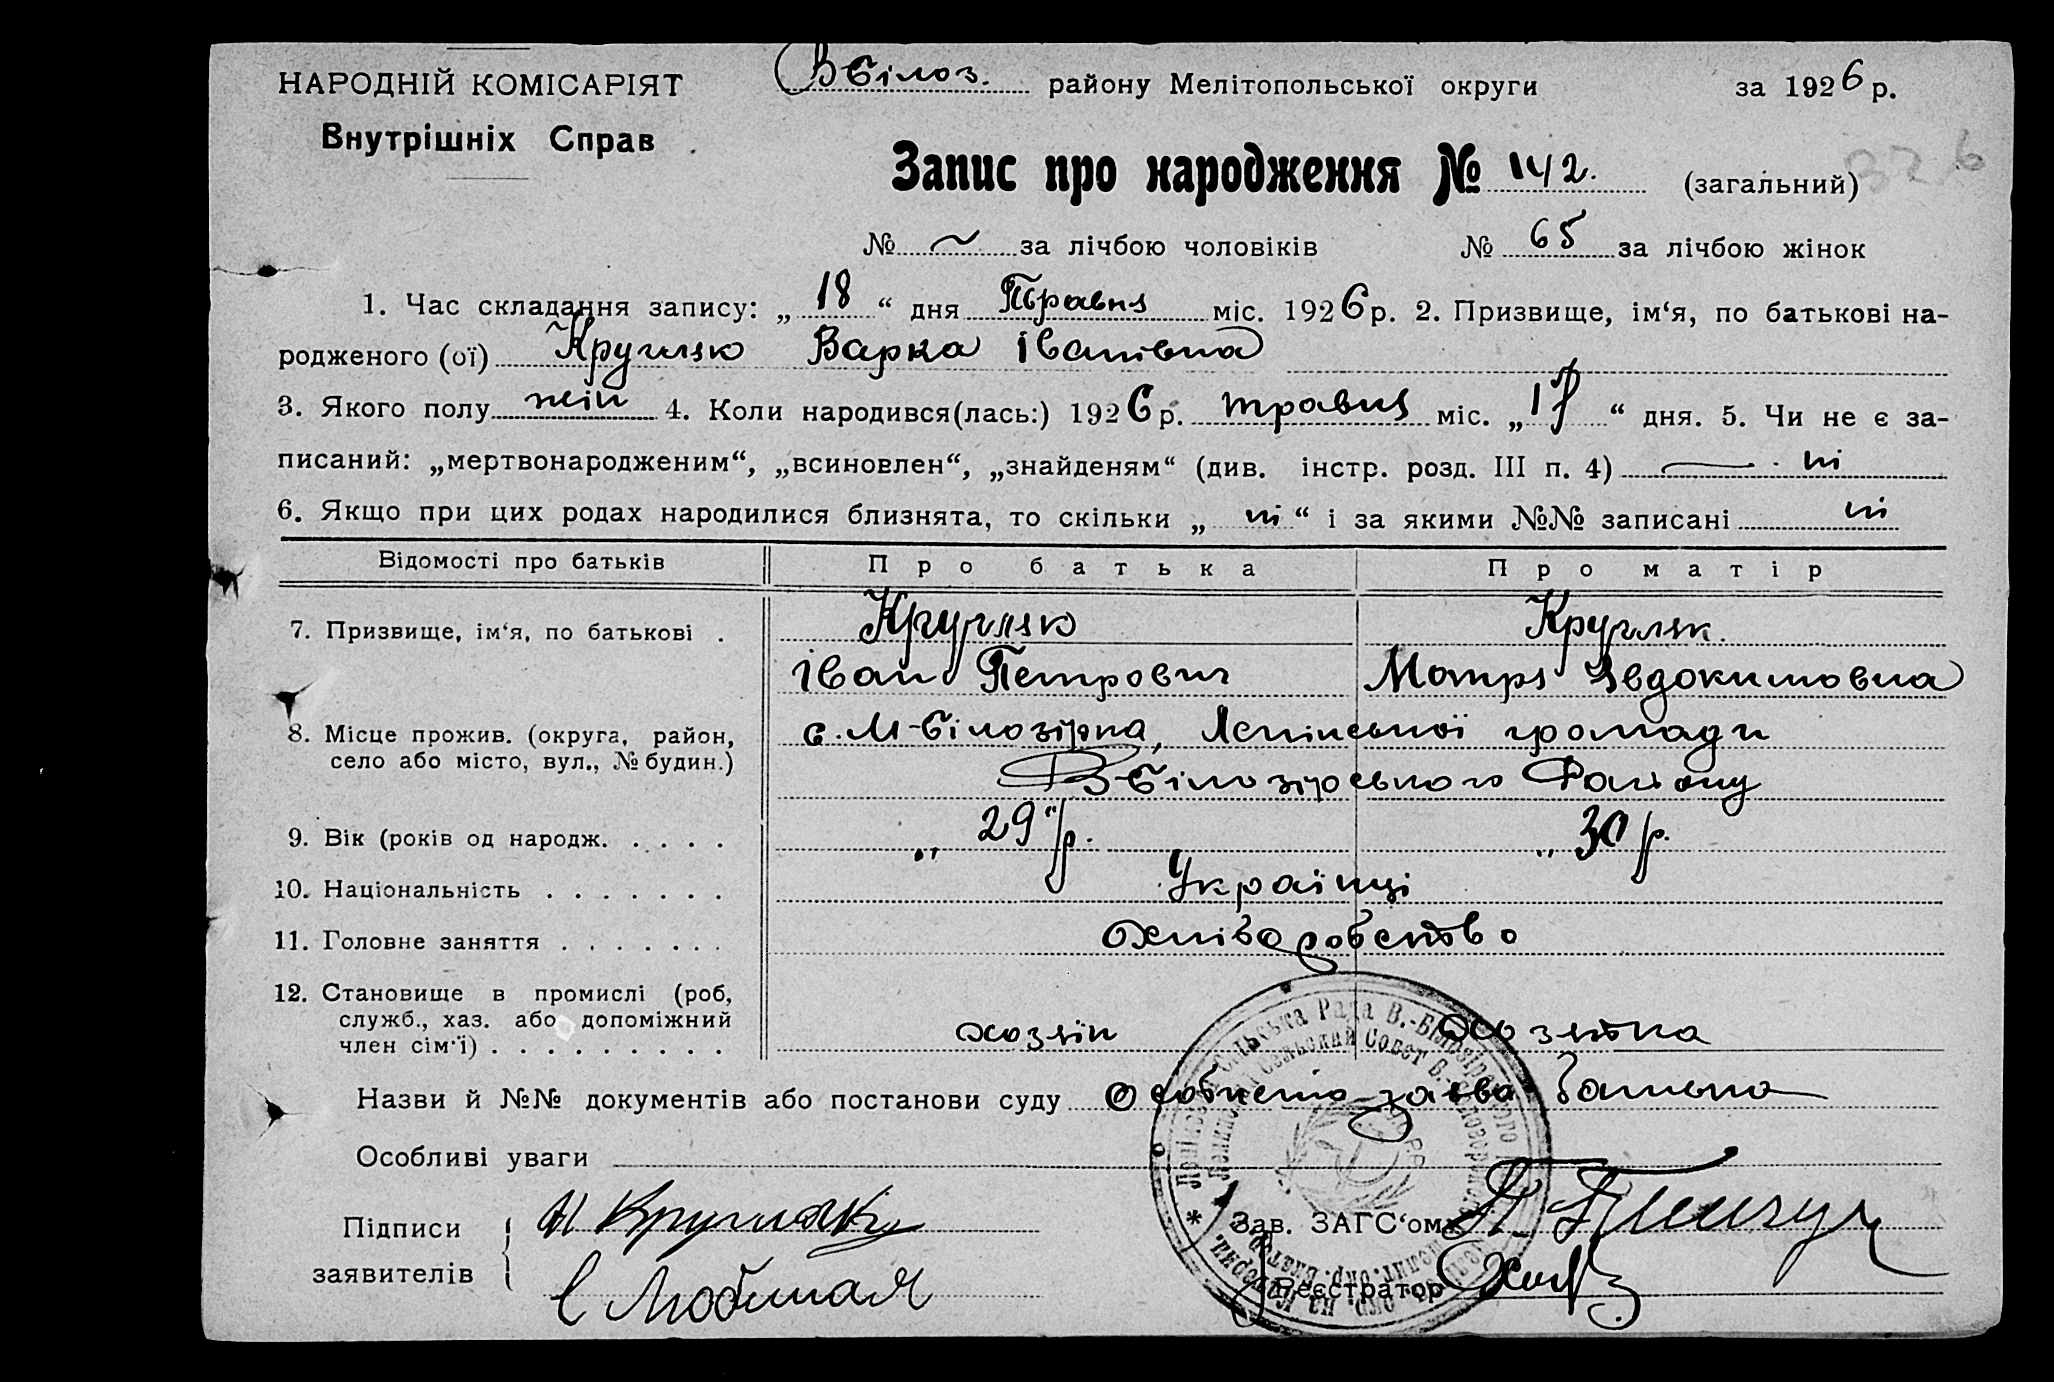 НАРОДНІЙ КОМІСАРІЯТ
Внутрішніх Справ
В Білоз. району Мелітопольської округи за 1926 р.
Запис про народження № 142. (загальний)
326
№ ~ за лічбою чоловіків № 65 за лічбою жінок
1. Час складання запису: „ 18 “ дня Травня міс. 1926 р. 2. Призвище, ім‘я, по батькові на-
родженого (ої) Кругляк Варка Іванівна
3. Якого полу жін 4. Коли народився(лась:) 1926 р. травня міс. „ 17 “ дня. 5. Чи не є за-
писаний: „мертвонародженим“, „всиновлен“, „знайденям“ (див. інстр. розд. III п. 4) — ні
6. Якщо при цих родах народилися близнята, то скільки „ ні “ і за якими №№ записані ні
Відомості про батьків Про батька Про матір
7. Призвище, ім‘я, по батькові . Кругляк Кругляк.
Іван Петрович Мотря Євдокимовна
8. Місце прожив. (округа, район, с. М-Білозірка, Ленінської громади
село або місто, вул., № будин.) В-Білозірського Району
9. Вік (років од народж. . . . . „ 29 р. „ 30 р.
10. Національність . . . . . . . Українці
11. Головне заняття . . . . . . . Хліборобство
12. Становище в промислі (роб,
служб., хаз. або допоміжний
член сім‘ї) . . . . . . . . . хозяїн хозяйка
Назви й №№ документів або постанови суду Особиста заява батька
Особливі уваги
Підписи Кругляк Зав. ЗАГС‘ом
заявителів Реєстратор
Сільська Рада В.-Білозірського